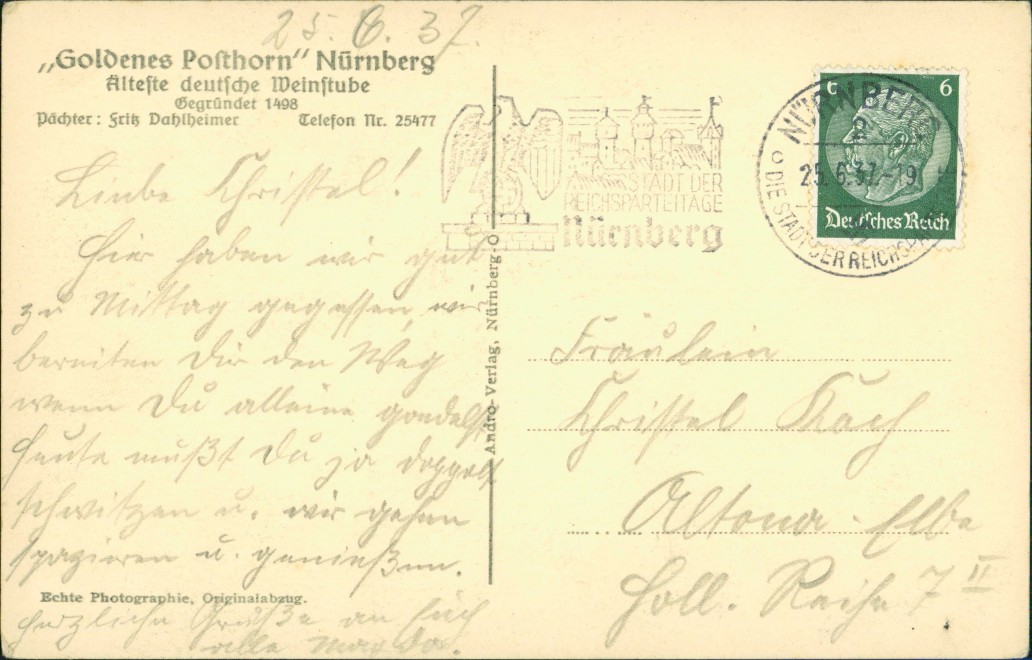 25. 6. 37.
„Goldenes Posthorn“ Nürnberg
Älteste deutsche Weinstube
Gegründet 1498
Pächter: Fritz Dahlheimer Telefon Nr. 25477
Liebe Christel!
Hier haben wir gut
zu Mittag gegessen, wir
bereiten Dir den Weg
wenn Du alleine gondelst
heute mußt Du ja doppelt
schwitzen u. wir gehen
spazieren u. genießen.
Echte Photographie, Originalabzug.
herzliche Grüße an Euch
alle
Andro-Verlag, Nürnberg-O
STADT DER
REICHSPARTEITAGE
Nürnberg
NÜRNBERG
2
25.6.37.-19
DIE STADT DER REICHSPA
6
Deutsches Reich
Fräulein
Christel Koch
Altona-Elbe
Holl. Reihe 7 II